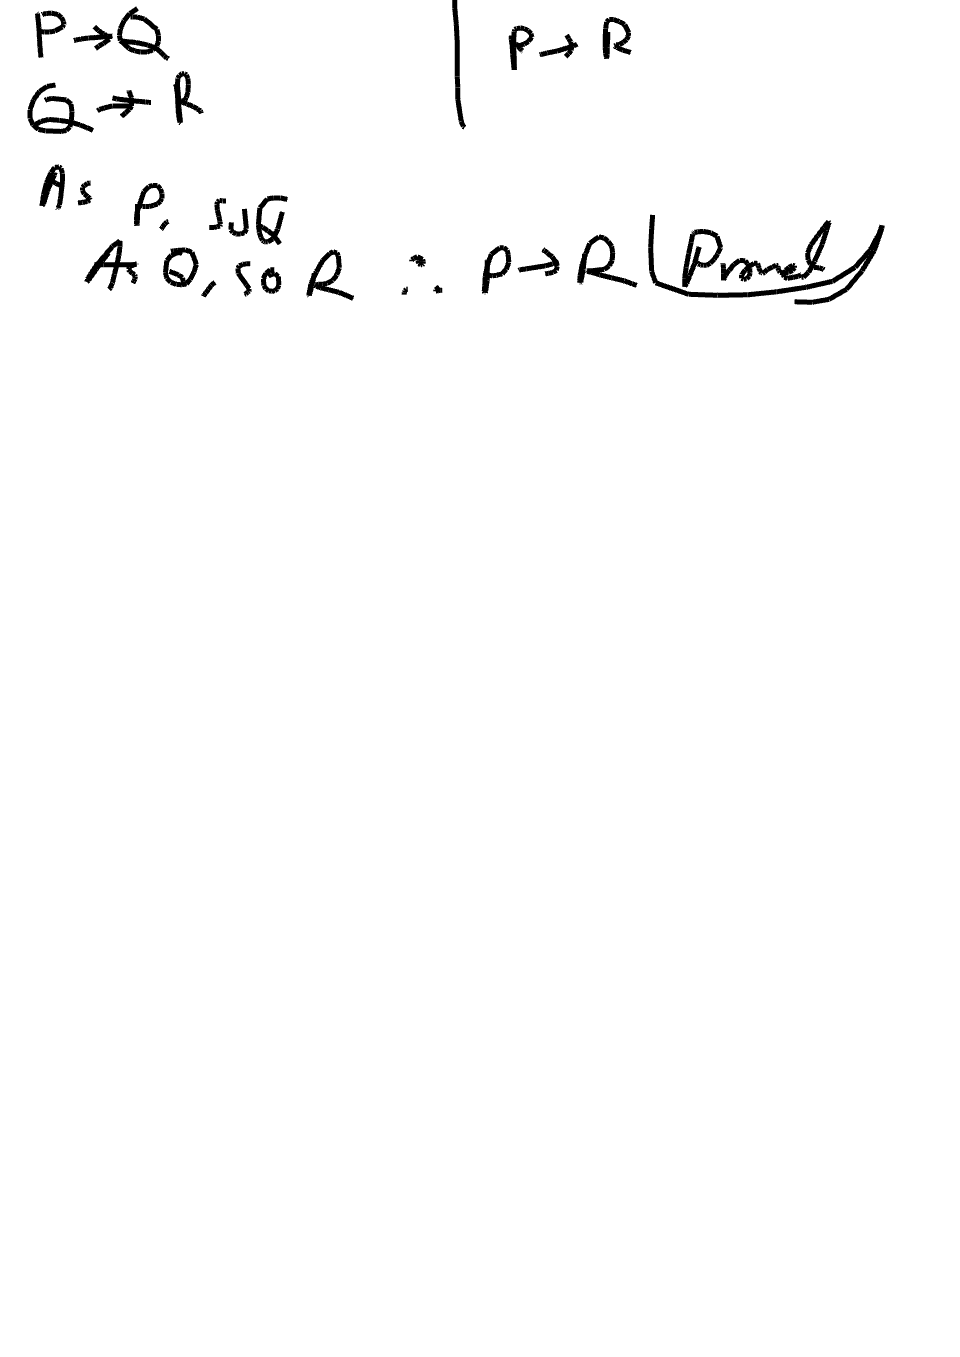 P → Q
Q → R
P → R
As P, so Q
As Q, so R ∴ P → R Proved